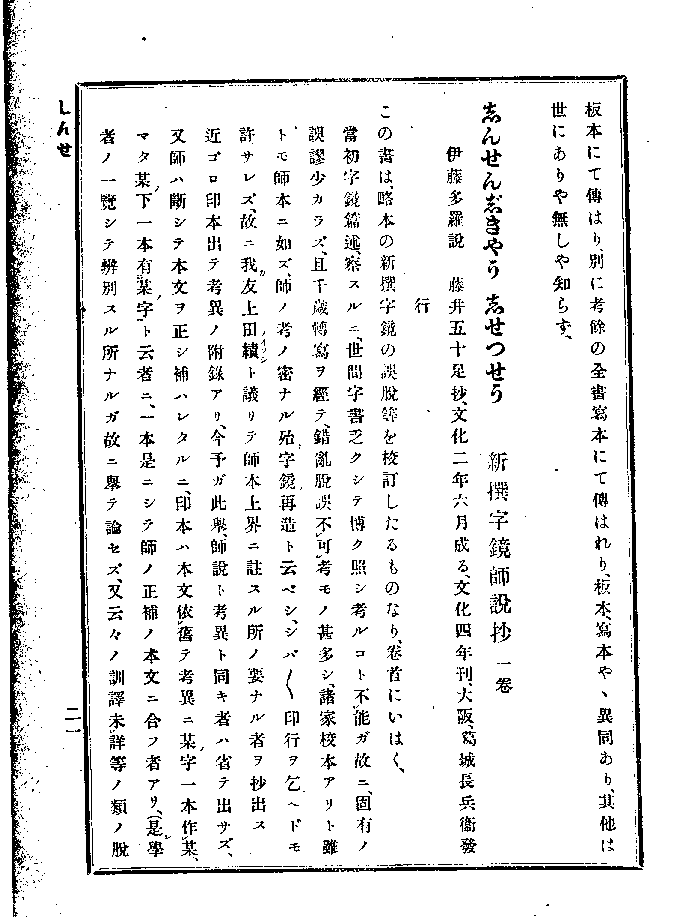 板本にて傳はり、別に考餘の全書寫本にて傳はれり、板本、寫本やゝ異同あり、其他は
世にありや無しや知らず、
志んせんぢきやう 志せつせう 新撰字鏡師說抄 一卷
伊藤多羅說 藤井五十足抄、文化二年六月成る、文化四年刊、大阪、葛城長兵衞發
行
この書は、略本の新撰字鏡の誤脫等を校訂したるものなり、卷首にいはく、
當初字鏡篇述、察スルニ、世間字書乏クシテ博ク照シ考ルコト不能ガ故ニ、固有ノ
誤謬少カラズ、且千歲轉寫ヲ經テ、錯亂脫誤不可考モノ甚多シ、諸家校本アリト雖
トモ師本ニ如ズ、師ノ考ノ密ナル殆字鏡再造ト云ベシ、シバ〱印行ヲ乞ヘドモ
許サレズ、故ニ我友上田績ト議リテ師本上界ニ註スル所ノ要ナル者ヲ抄出ス
近ゴロ印本出テ考異ノ附錄アリ、今予ガ此擧、師說ト考異ト同キ者ハ省テ出サズ、
又師ハ斷シテ本文ヲ正シ補ハレタルニ、印本ハ本文依舊テ考異ニ某字一本作某、
マタ某下一本有某字ト云者ニ、一本是ニシテ師ノ正補ノ本文ニ合フ者アリ、(是學
者ノ一覽シテ辨別スル所ナルガ故ニ擧テ論セズ、又云々ノ訓譯未詳等ノ類ノ脫
しんせ
二一